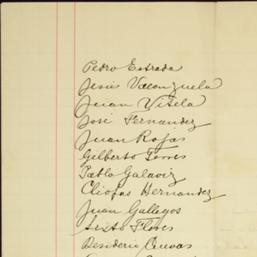 Pedro Estrada
Jesús Valenzuela
Juan Vitela
José Fernandez
Juan Rojas
Gilberto Torres
Pablo Galaviz
Cliofas Hernandez
Juan Gallegos
Sixto Flores
Desiderio Cuevas